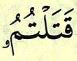 قَتَلْتُمُو